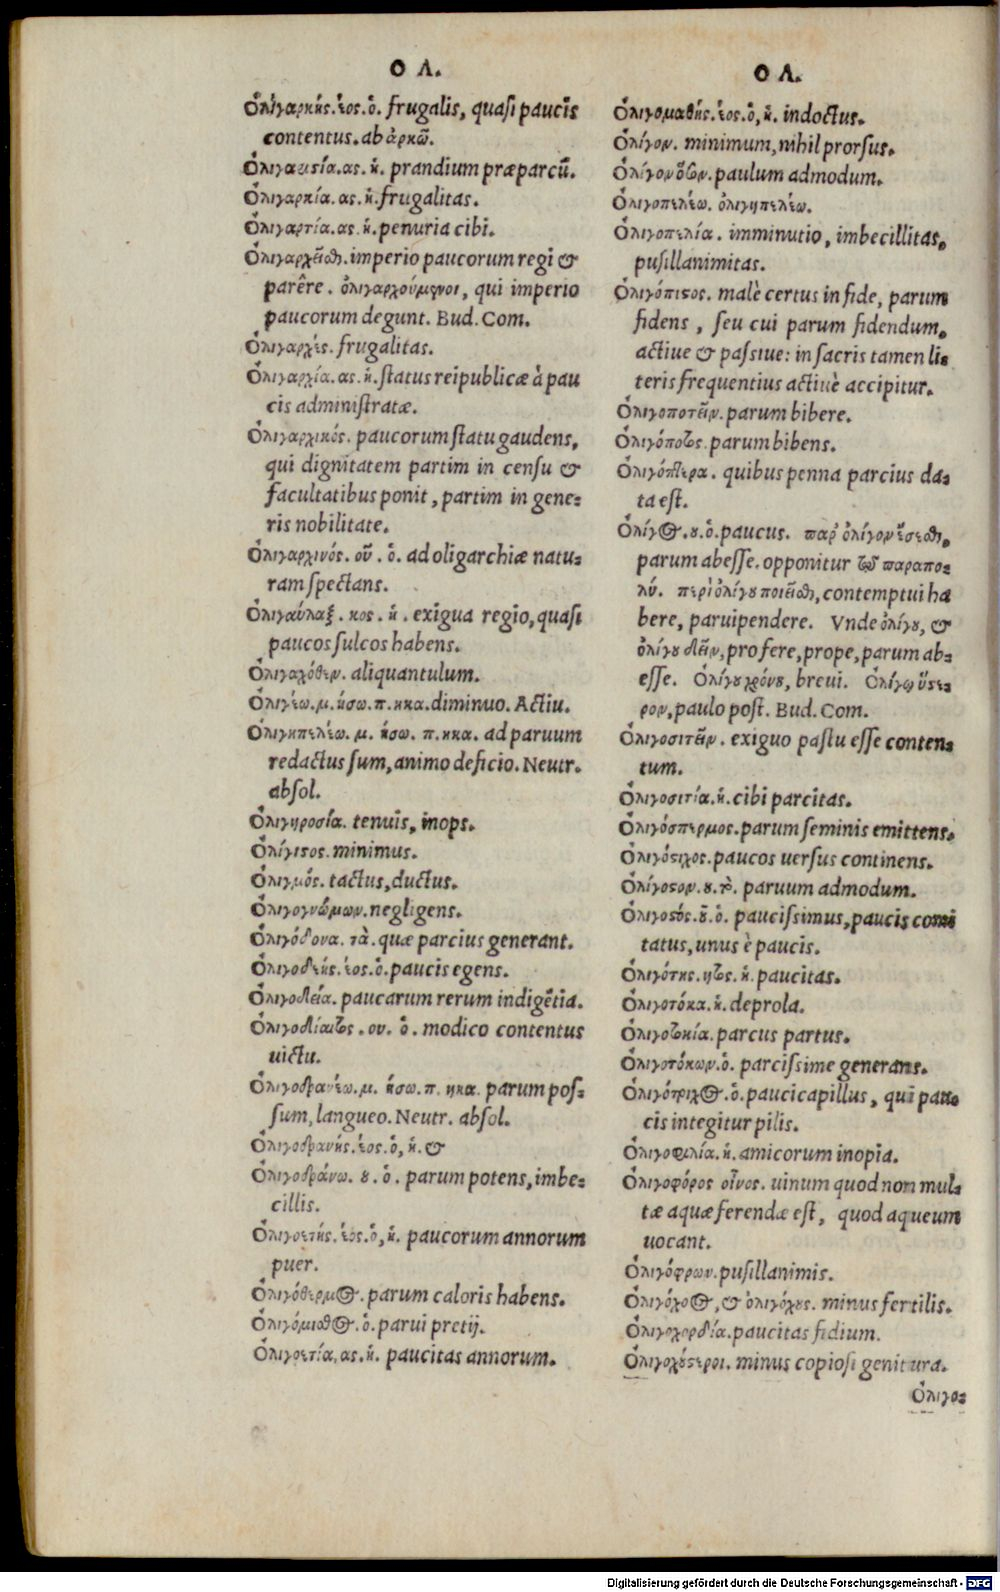 Ο Λ.
Ὀλιγαρκής. έος. ὁ. frugalis, quasi paucis
contentus. ab ἀρκῶ.
Ὀλιγαισία. ας. ἡ. prandium præparcũ.
Ὀλιγαρκία. ας. ἡ. frugalitas.
Ὀλιγαρτία. ας. ἡ. penuria cibi.
Ὀλιγαρχεῖσθ. imperio paucorum regi &
parêre. ὀλιγαρχούμενοι, qui imperio
paucorum degunt. Bud. Com.
Ὀλιγαρχές. frugalitas.
Ὀλιγαρχία. ας. ἡ. status reipublicæ à pau
cis administratæ.
Ὀλιγαρχικός. paucorum statu gaudens,
qui dignitatem partim in censu &
facultatibus ponit, partim in gene-
ris nobilitate.
Ὀλιγαρχινός. οῦ. ὁ. ad oligarchiæ natu-
ram spectans.
Ὀλιγαύλαξ. κος. ἡ. exigua regio, quasi
paucos sulcos habens.
Ὀλιγαχόθεν. aliquantulum.
Ὀλιγέω. μ. ήσω. π. ηκα. diminuo. Actiu.
Ὀλιγηπελέω. μ. ήσω. π. ηκα. ad paruum
redactus sum, animo deficio. Neutr.
absol.
Ὀλιγηροσία. tenuis, inops.
Ὀλίγιστος. minimus.
Ὀλιγμός. tactus, ductus.
Ὀλιγογνώμων. negligens.
Ὀλιγόδονα. τὰ. quæ parcius generant.
Ὀλιγοδεής. έος. ὁ. paucis egens.
Ὀλιγοδεία. paucarum rerum indigẽtia.
Ὀλιγοδίαιτος. ου. ὁ. modico contentus
uictu.
Ὀλιγοδρανέω. μ. ήσω. π. ηκα. parum pos-
sum, langueo. Neutr. absol.
Ὀλιγοδρανής. έος. ὁ, ἡ. &
Ὀλιγοδράνω. ου. ὁ. parum potens, imbe-
cillis.
Ὀλιγοετής. έος. ὁ, ἡ. paucorum annorum
puer.
Ὀλιγόθερμος. parum caloris habens.
Ὀλιγόμισθος. ὁ. parui pretij.
Ὀλιγοετία, ας. ἡ. paucitas annorum.
Ο Λ.
Ὀλιγομαθής. έος. ὁ, ἡ. indoctus.
Ὀλίγον. minimum, nihil prorsus.
Ὀλίγον ὅσον. paulum admodum.
Ὀλιγοπελέω. ὀλιγηπελέω.
Ὀλιγοπελία. imminutio, imbecillitas,
pusillanimitas.
Ὀλιγόπιστος. malè certus in fide, parum
fidens, seu cui parum fidendum,
actiue & passiue: in sacris tamen li-
teris frequentius actiuè accipitur.
Ὀλιγοποτεῖν. parum bibere.
Ὀλιγόποτος. parum bibens.
Ὀλιγόπτερα. quibus penna parcius da-
ta est.
Ὀλίγος. ου. ὁ. paucus. παρ' ὀλίγον ἔσεσθ,
parum abesse. opponitur τῷ παραπο-
λύ. περὶ ὀλίγου ποιεῖσθ, contemptui ha
bere, paruipendere. Vnde ὀλίγου, &
ὀλίγου δεῖν, pro fere, prope, parum ab-
esse. Ὀλίγου χρόνου, breui. Ὀλίγῳ ὕστε-
ρον, paulo post. Bud. Com.
Ὀλιγοσιτεῖν. exiguo pastu esse conten-
tum.
Ὀλιγοσιτία. ἡ. cibi parcitas.
Ὀλιγόσπερμος. parum seminis emittens.
Ὀλιγόστιχος. paucos uersus continens.
Ὀλίγοστον. ου. τὸ. paruum admodum.
Ὀλιγοστός. οῦ. ὁ. paucissimus, paucis comi
tatus, unus è paucis.
Ὀλιγότης. ητος. ἡ. paucitas.
Ὀλιγοτόκα. ἡ. deprola.
Ὀλιγοτοκία. parcus partus.
Ὀλιγοτόκων. ὁ. parcissime generans.
Ὀλιγότριχος. ὁ. paucicapillus, qui pau-
cis integitur pilis.
Ὀλιγοφιλία. ἡ. amicorum inopia.
Ὀλιγοφόρος οἶνος. uinum quod non mul-
tæ aquæ ferendæ est, quod aqueum
uocant.
Ὀλιγόφρων. pusillanimis.
Ὀλιγόχοος, & ὀλιγόχους. minus fertilis.
Ὀλιγοχορδία. paucitas fidium.
Ὀλιγοχούστεροι. minus copiosi genitura.
Ὀλιγο-
Digitalisierung gefördert durch die Deutsche Forschungsgemeinschaft - DFG